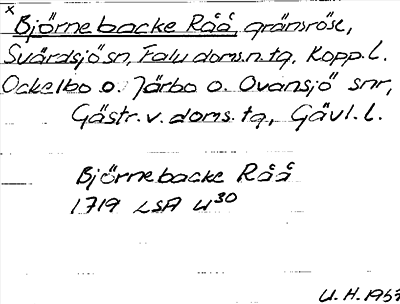 x Björnebacke Råå, gränsröse,
Svärdsjö sn, Falu doms.n.tg, Kopp.l.
Ockelbo o. Järbo o. Ovansjö snr,
Gästr.v.doms.tg, Gävl.l.
Björnebacke Råå
1719 LSA U30
U.H.